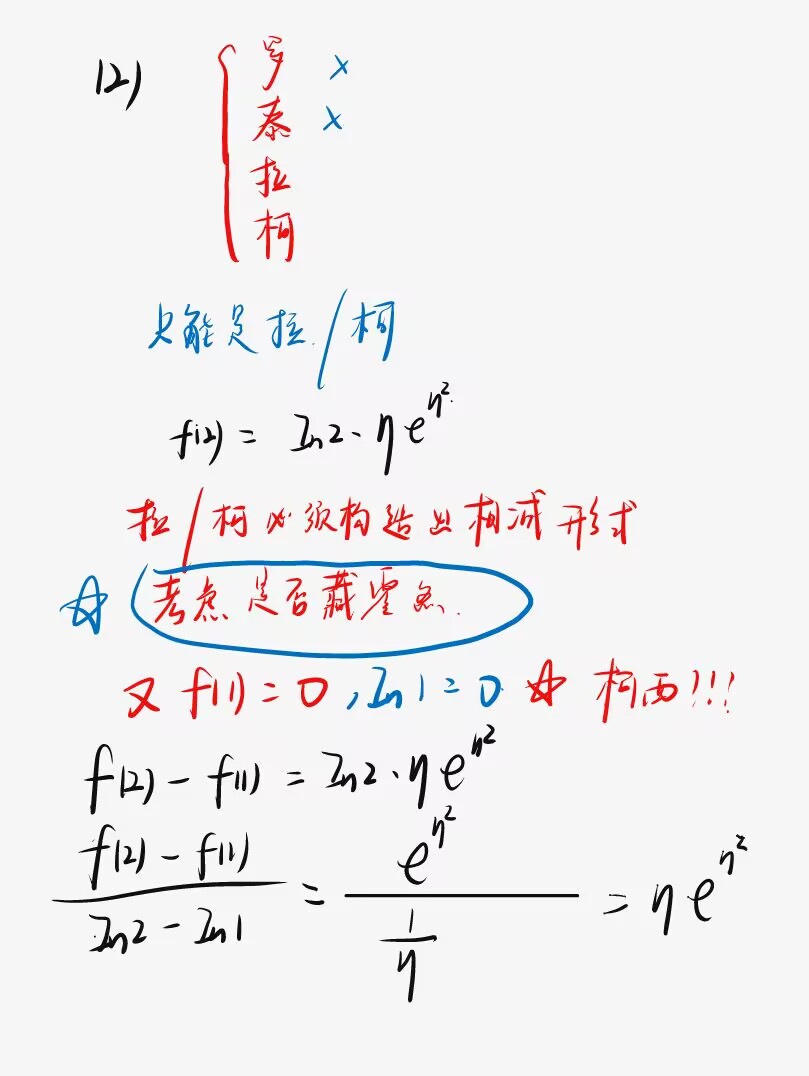 (2)
罗 ×
泰 ×
拉
柯
只能是拉/柯
f(2) = ln2·ηe^{η²}
拉/柯必须构造出相减形式
☆ 考虑是否藏零点.
又 f(1) = 0, ln1 = 0 ☆ 柯西!!!
f(2) - f(1) = ln2·ηe^{η²}
\frac{f(2) - f(1)}{ln2 - ln1} = \frac{e^{η²}}{\frac{1}{η}} = ηe^{η²}